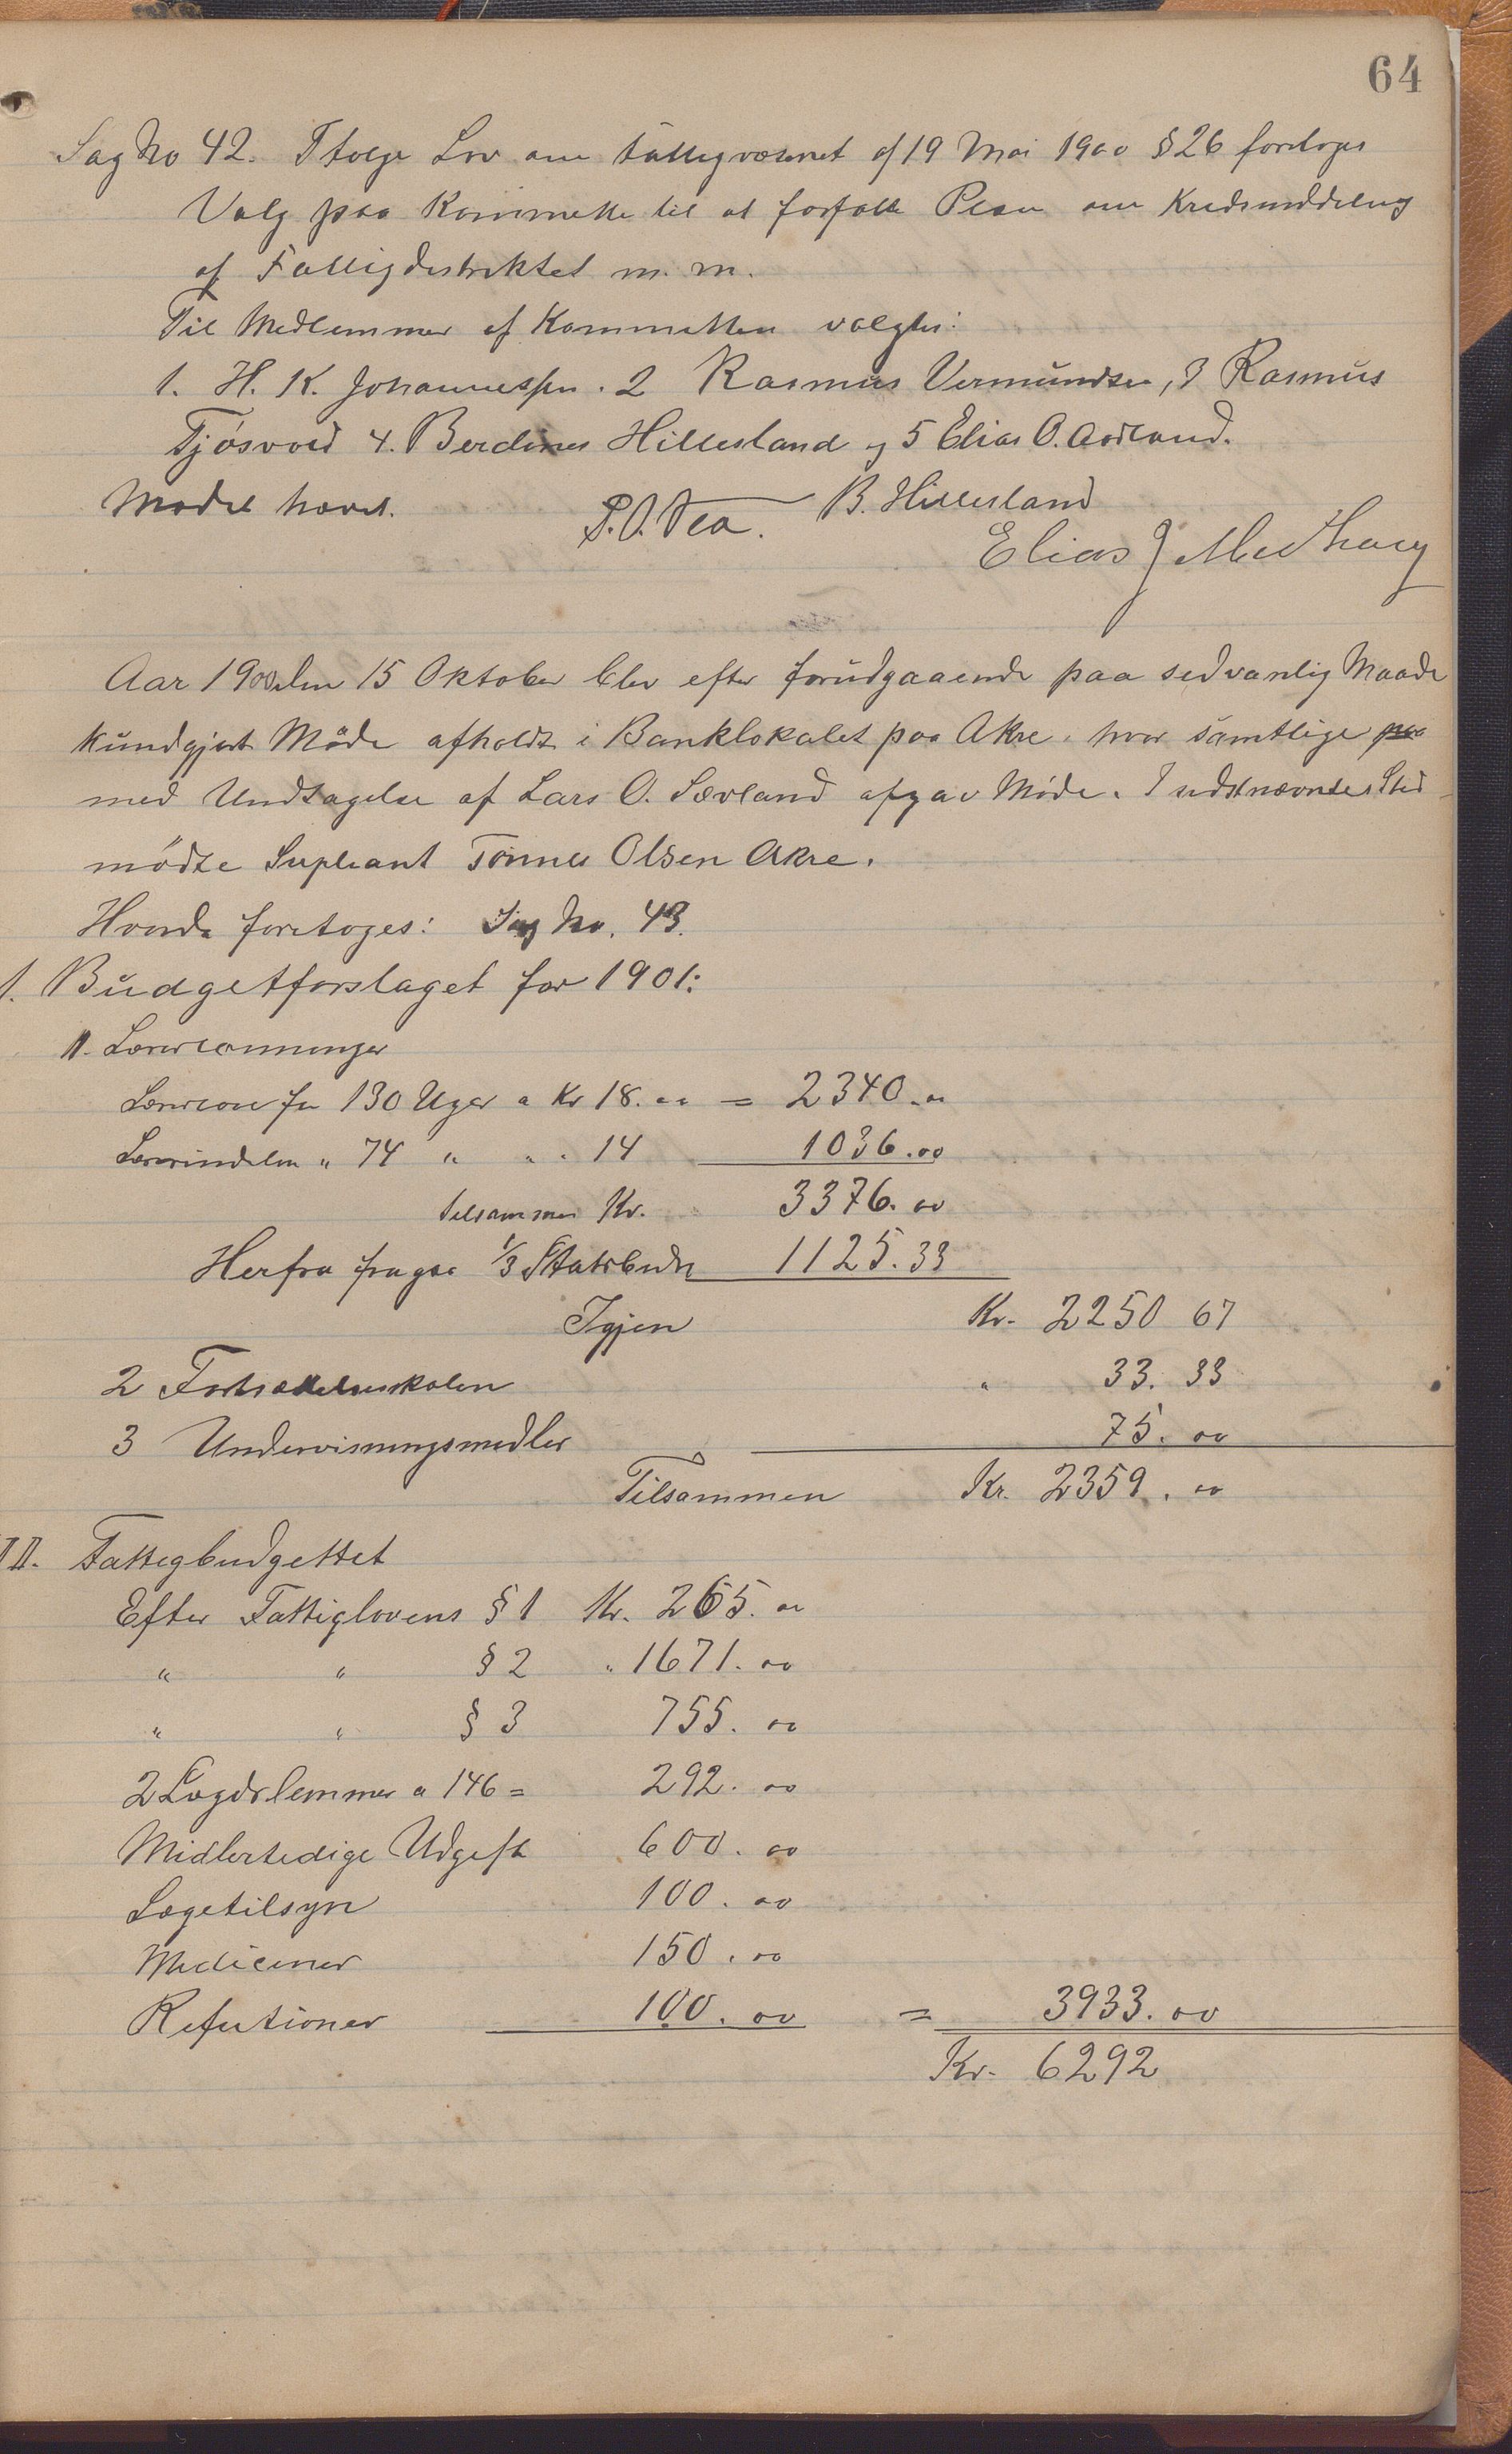 64
Sag No 42. Ifolge Lov om Fattigvæsenet af 19 Mai 1900 § 26 foretoges
Valg paa Kommette til at forfatte Plan om Kredsinddeling
af Fattigdistriktet m. m.
Til Medlemmer af Kommitten valgtes:
1. H. K. Johannessen. 2 Rasmus Vermundsen, 3 Rasmus
Tjøsvold 4. Berdines Hillesland og 5 Elias O. Aadland.
Mødet hævet. P. O. Vea. B. Hillesland
Elias J
Aar 1900 den 15 Oktober blev efter forudgaaende paa sedvanlig Maade
kundgjort Møde afholdt i Banklokalet paa Akre. hvor samtlige paa
med Undtagelse af Lars O. Sævland afgav Møde. I sidstnævntes Sted
mødte Supleant Tønnes Olsen Akre.
Hvorda foretoges: Sag No. 43.
1. Budgetforslaget for 1901:
1. Lærerlønninger
Lærerløn for 130 Uger a Kr 18.00 = 2340.00
Lærerindeløn " 74 " " " 14 1036.00
Tilsammen Kr. 3376.00
Herfra fragaa 1/3 Statsbidr 1125.33
Igjen Kr. 2250 67
2 Fortsættelsesskolen " 33.33
3 Undervisningsmidler 75.00
Tilsammen Kr. 2359.00
II. Fattigbudgettet
Efter Fattiglovens § 1 Kr. 265.00
" " § 2 " 1671.00
" " § 3 755.00
2 Lægdslemmer a 146 = 292.00
Midlertedige Udgift 600.00
Lægetilsyn 100.00
Mediciner 150.00
Refutioner 100.00 = 3933.00
Kr. 6292